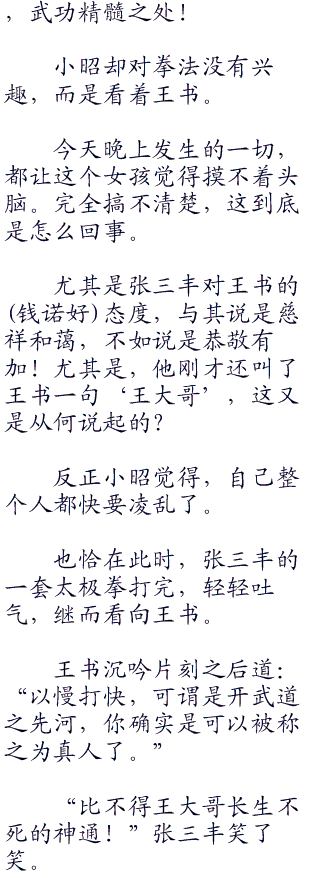 ，武功精髓之处！
小昭却对拳法没有兴
趣，而是看着王书。
今天晚上发生的一切，
都让这个女孩觉得摸不着头
脑。完全搞不清楚，这到底
是怎么回事。
尤其是张三丰对王书的
(钱诺好)态度，与其说是慈
祥和蔼，不如说是恭敬有
加！尤其是，他刚才还叫了
王书一句‘王大哥’，这又
是从何说起的？
反正小昭觉得，自己整
个人都快要凌乱了。
也恰在此时，张三丰的
一套太极拳打完，轻轻吐
气，继而看向王书。
王书沉吟片刻之后道：
“以慢打快，可谓是开武道
之先河，你确实是可以被称
之为真人了。”
“比不得王大哥长生不
死的神通！”张三丰笑了
笑。